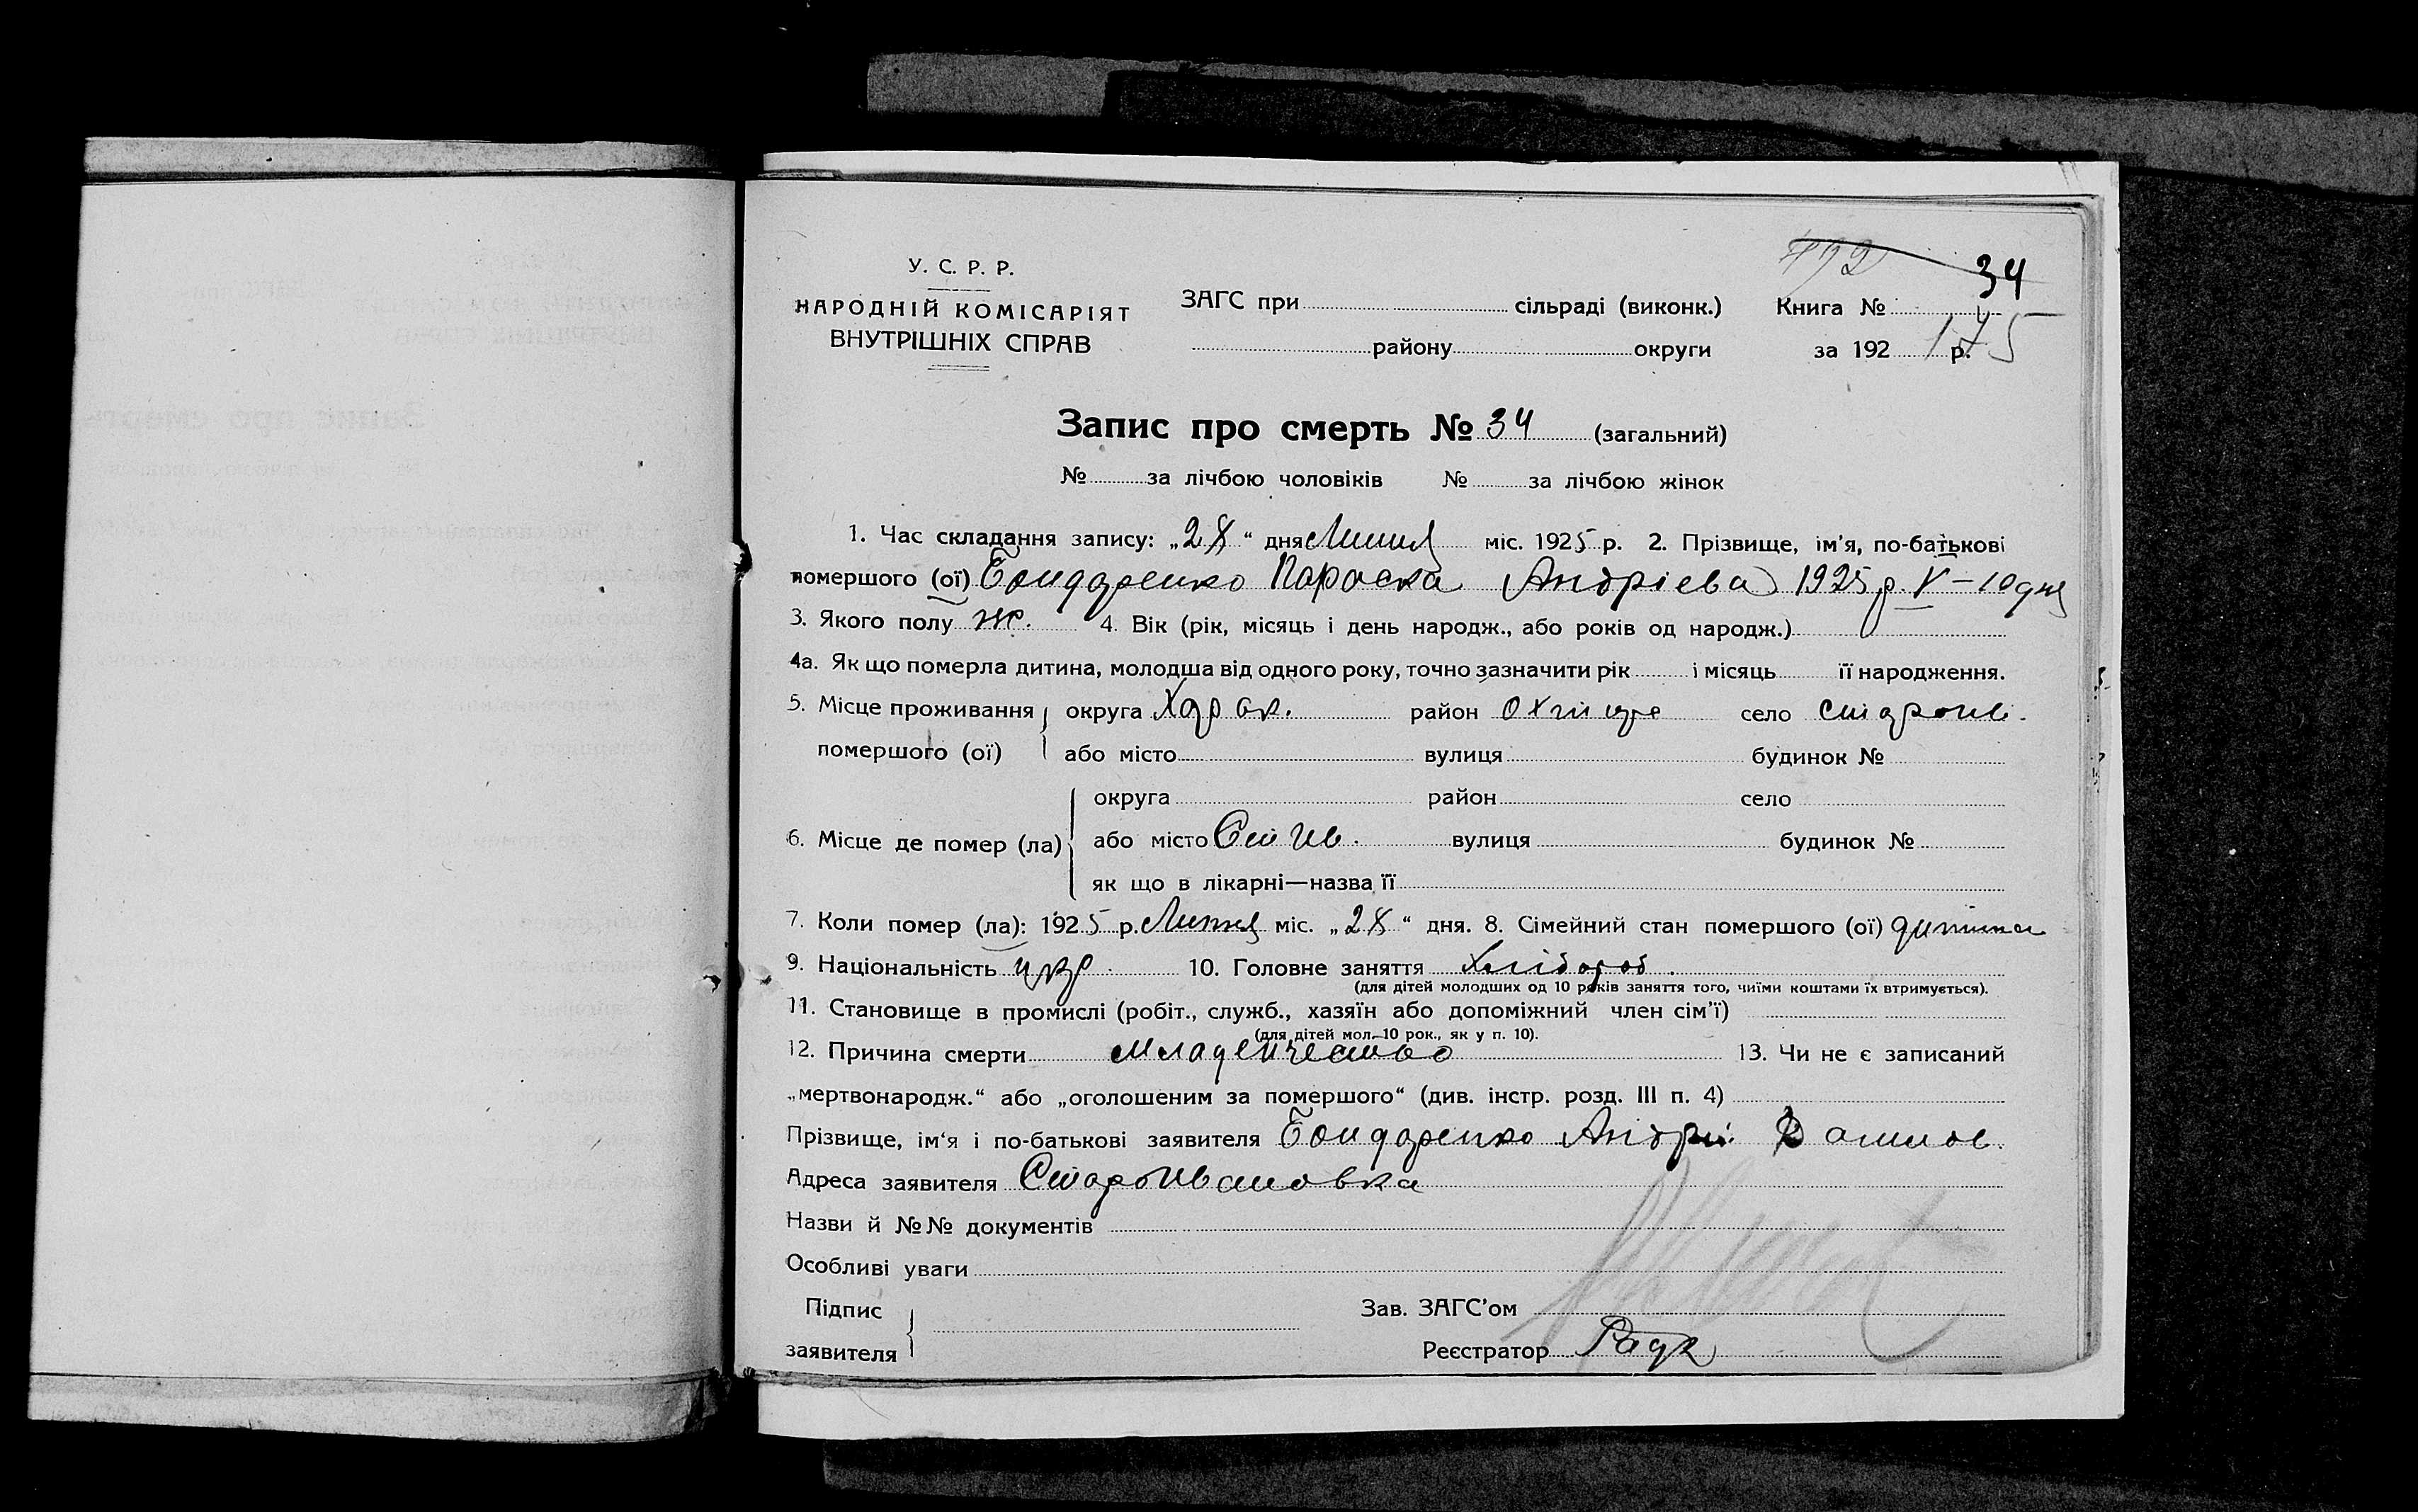 34
У. С. Р. Р.
НАРОДНІЙ КОМІСАРІЯТ
ВНУТРІШНІХ СПРАВ
ЗАГС при сільраді (виконк.) Книга №
району округи за 192 р. 175
Запис про смерть № 34 (загальний)
№ за лічбою чоловіків № за лічбою жінок
1. Час складання запису: „28“ дня Липня міс. 1925 р. 2. Прізвище, ім'я, по-батькові
помершого (ої) Бондаренко Параска Андріева 1925 р. V – 10 дня
3. Якого полу ж. 4. Вік (рік, місяць і день народж., або років од народж.)
4а. Як що померла дитина, молодша від одного року, точно зазначити рік і місяць її народження.
5. Місце проживання округа Харак. район село Староив.
помершого (ої) або місто вулиця будинок №
округа район село
6. Місце де помер (ла) або місто Ст Ив. вулиця будинок №
як що в лікарні—назва її
7. Коли помер (ла): 1925 р. Липня міс. „28“ дня. 8. Сімейний стан помершого (ої) дитина
9. Національність укр. 10. Головне заняття Хлібороб.
(для дітей молодших од 10 років заняття того, чиїми коштами їх втримується).
11. Становище в промислі (робіт., служб., хазяїн або допоміжний член сім'ї)
(для дітей мол. 10 рок., як у п. 10).
12. Причина смерти младенчество 13. Чи не є записаний
„мертвонародж.“ або „оголошеним за помершого“ (див. інстр. розд. III п. 4)
Прізвище, ім'я і по-батькові заявителя Бондаренко Андрій
Адреса заявителя Староивановка
Назви й №№ документів
Особливі уваги
Підпис Зав. ЗАГС'ом
заявителя Реєстратор